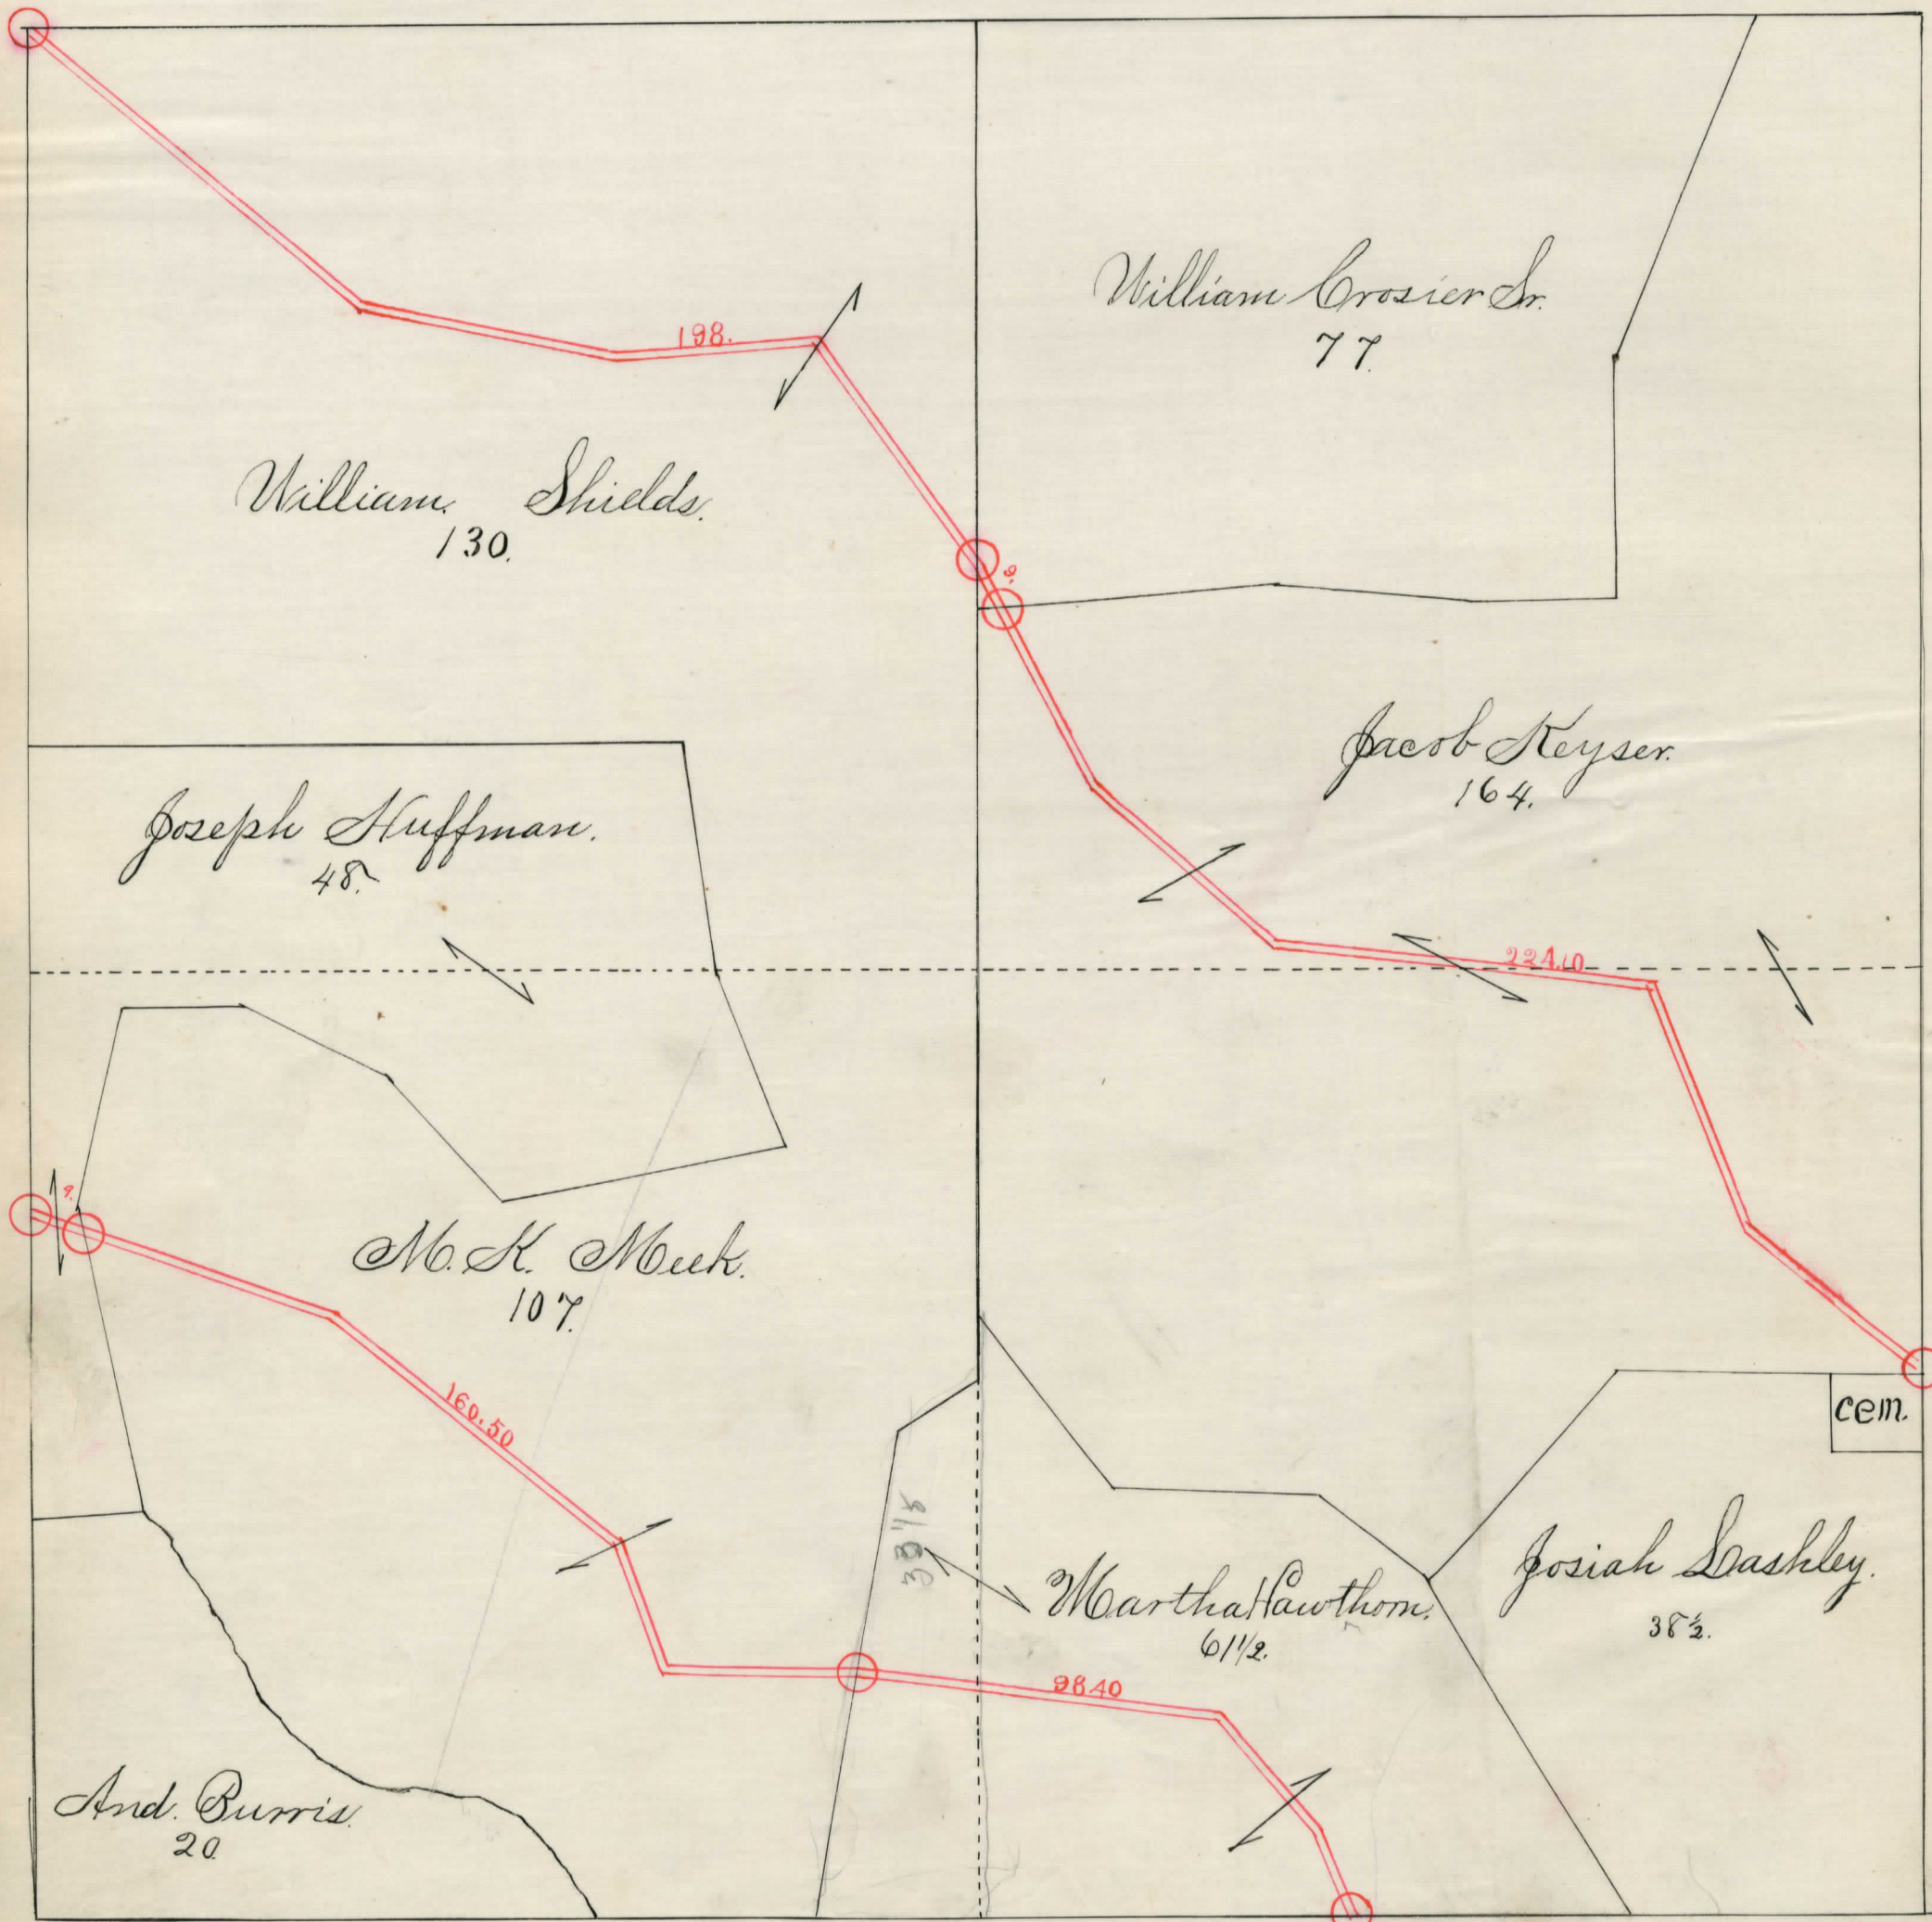 198.
William Crosier Sr.
77.
William. Shields.
130.
9.
Jacob Keyser.
164.
Joseph Huffman.
48.
224.10
9.
M. K. Meek.
107.
160.50
cem.
Martha Hawthorn.
61 1/2.
Josiah Lashley.
38 1/2.
98.40
And. Burris.
20.